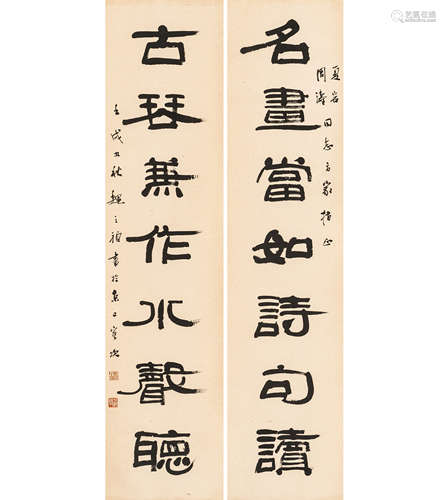 名畫當如詩句讀
夏岩
周濤
同志方家指正
古琴兼作水聲聽
壬戌中秋魏之禎書於